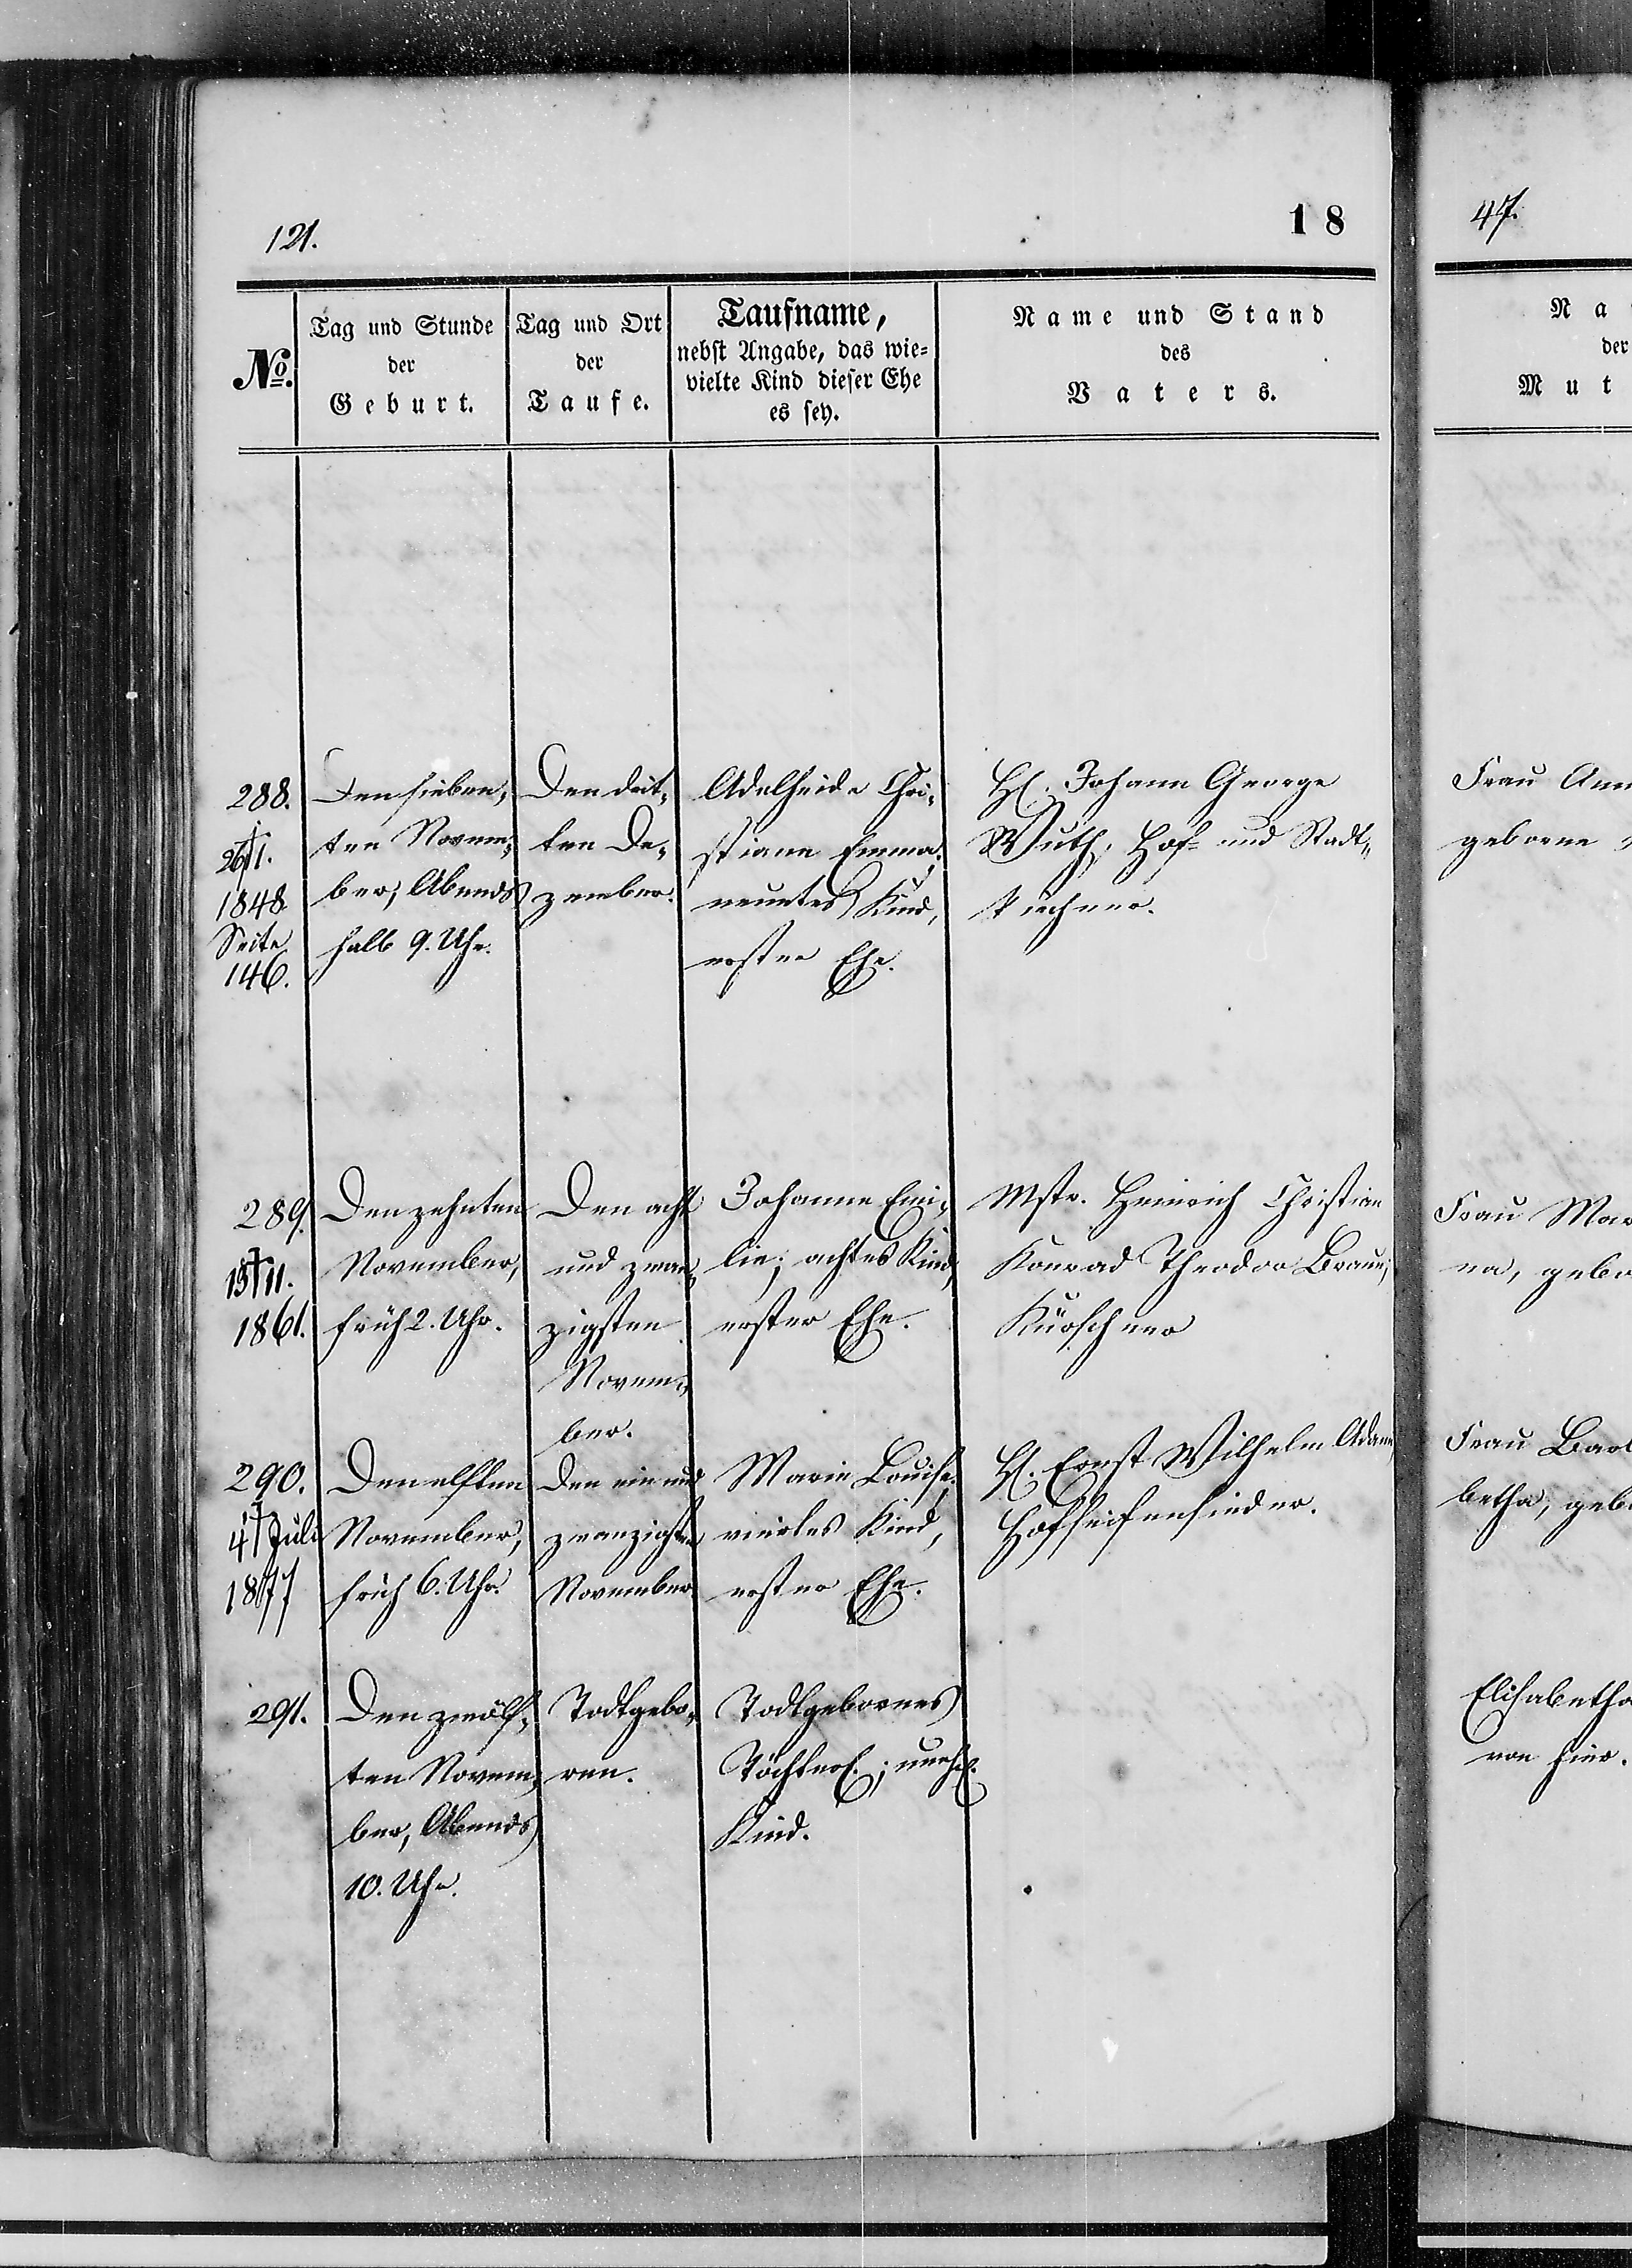 121.
18
47.
No.
Tag und Stunde
der
Geburt.
Tag und Ort
der
Taufe.
Taufname,
nebst Angabe, das wie=
vielte Kind dieser Ehe
es sey.
Name und Stand
des
Vaters.
Na
der
Mut
288.
26/1.
1848
Seite
146.
Den sieben,
ten Novem,
ber, Abends
halb 9. Uhr.
Den drit,
ten De,
zember.
Adelheide Chri,
stiane Emma;
neuntes Kind,
erster Ehe.
H. Johann George
Wuth, Hof- und Stadt,
tüchner.
Frau Ann
geborne
289.
15†11.
1861.
Den zehnten
November,
früh 2. Uhr.
Den acht
und zwan,
zigsten
Novem,
ber.
Johanne Emi,
lie; achtes Kind,
erster Ehe.
Mstr. Heinrich Christian
Konrad Theodor Braun,
Kürschner
Frau Mar
na, gebo
290.
4† Juli
1877
Den elften
November,
früh 6. Uhr.
Den ein und
zwanzigsten
November.
Marie Louise;
viertes Kind,
erster Ehe.
H. Ernst Wilhelm Adam,
Hofseifensieder.
Frau Barb
betha, gebo
291.
Den zwölf,
ten Novem,
ber, Abends
10. Uhr.
Todtgebo,
ren.
Todtgebornes
Töchterl.; unehl.
Kind.
Elisabetha
von hier.